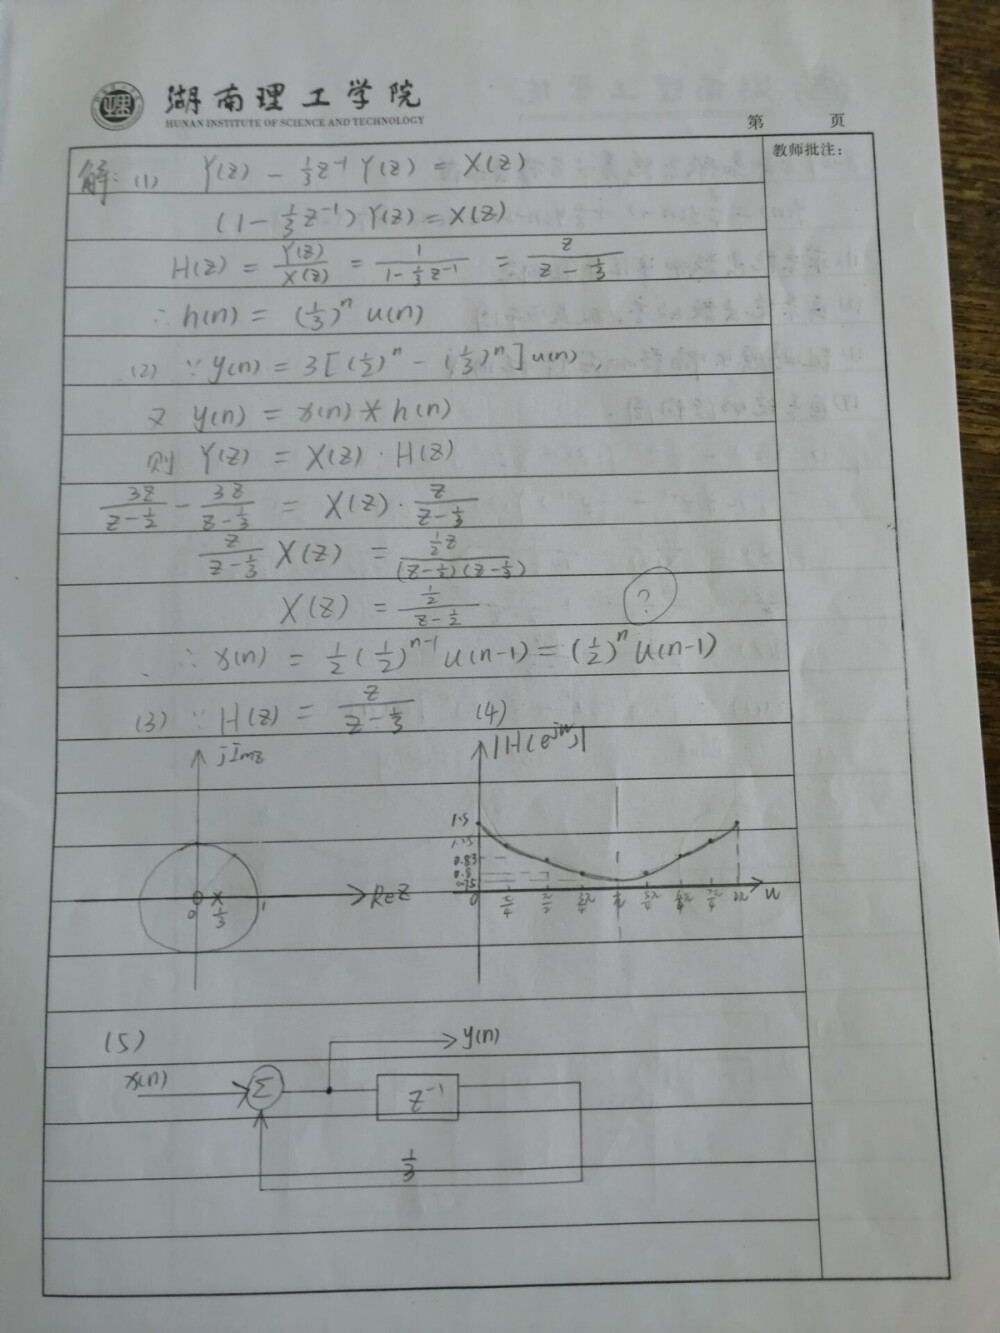 湖南理工学院
HUNAN INSTITUTE OF SCIENCE AND TECHNOLOGY
第 页
教师批注:
解: (1) Y(z) - 1/3 z⁻¹ Y(z) = X(z)
(1 - 1/3 z⁻¹) Y(z) = X(z)
H(z) = Y(z)/X(z) = 1/(1 - 1/3 z⁻¹) = z/(z - 1/3)
∴ h(n) = (1/3)ⁿ u(n)
(2) ∵ y(n) = 3[(1/2)ⁿ - (1/3)ⁿ] u(n),
又 y(n) = x(n) * h(n)
则 Y(z) = X(z) · H(z)
3z/(z - 1/2) - 3z/(z - 1/3) = X(z) · z/(z - 1/3)
z/(z - 1/3) X(z) = 1/2 z/((z - 1/2)(z - 1/3))
X(z) = 1/2/(z - 1/2) ?
∴ x(n) = 1/2 (1/2)ⁿ⁻¹ u(n-1) = (1/2)ⁿ u(n-1)
(3) ∵ H(z) = z/(z - 1/3) (4)
jImz
0 1/3 1 Rez
|H(e^jw)|
1.5
0.83
0.75
0 π/4 π/2 3π/4 π 5π/4 7π/4 2π w
(5)
x(n) Σ z⁻¹ y(n)
1/3